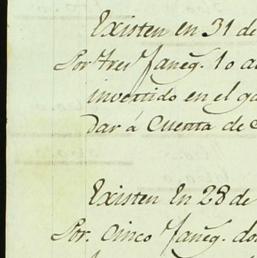 Existen en 31 de
Por tres faneg. 10 a
invertido en el ga
dar á Cuenta de
Existen En 28 de
Por. Cinco faneg. do